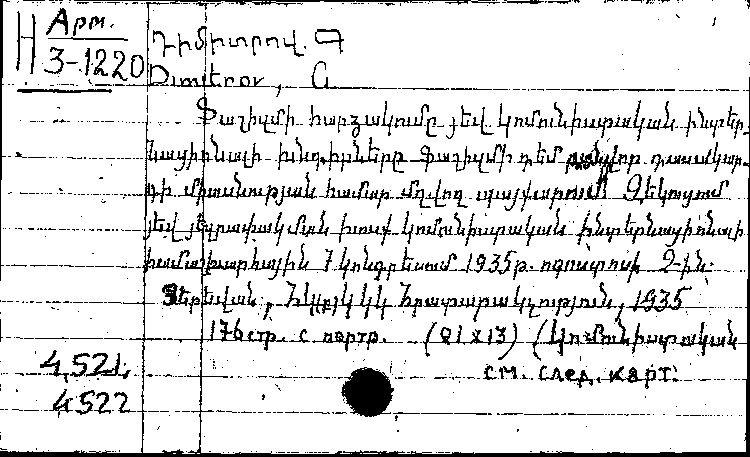 Н Арм.
3-1220
Դիմիտրով. Գ
Dimitrov, G
Ֆաշիզմի հարձակումը յեվ կոմունիստական ինտեր-
նացիոնալի խնդիրները ֆաշիզմի դեմ բանվոր դասակար-
գի միասնության համար մղվող պայքարում Զեկուցում
յեվ յեզրափակման խոսք կոմունիստական ինտերնացիոնալի
համաշխարհային 7 կոնգրեսում 1935թ. ոգոստոսի 2-ին.
Յերեվան, Հկ(բ)կ կկ հրատարակչություն, 1935
176 стр. с портр. (21x13) (Կոմունիստական
см. след. карт.
4,521,
4522